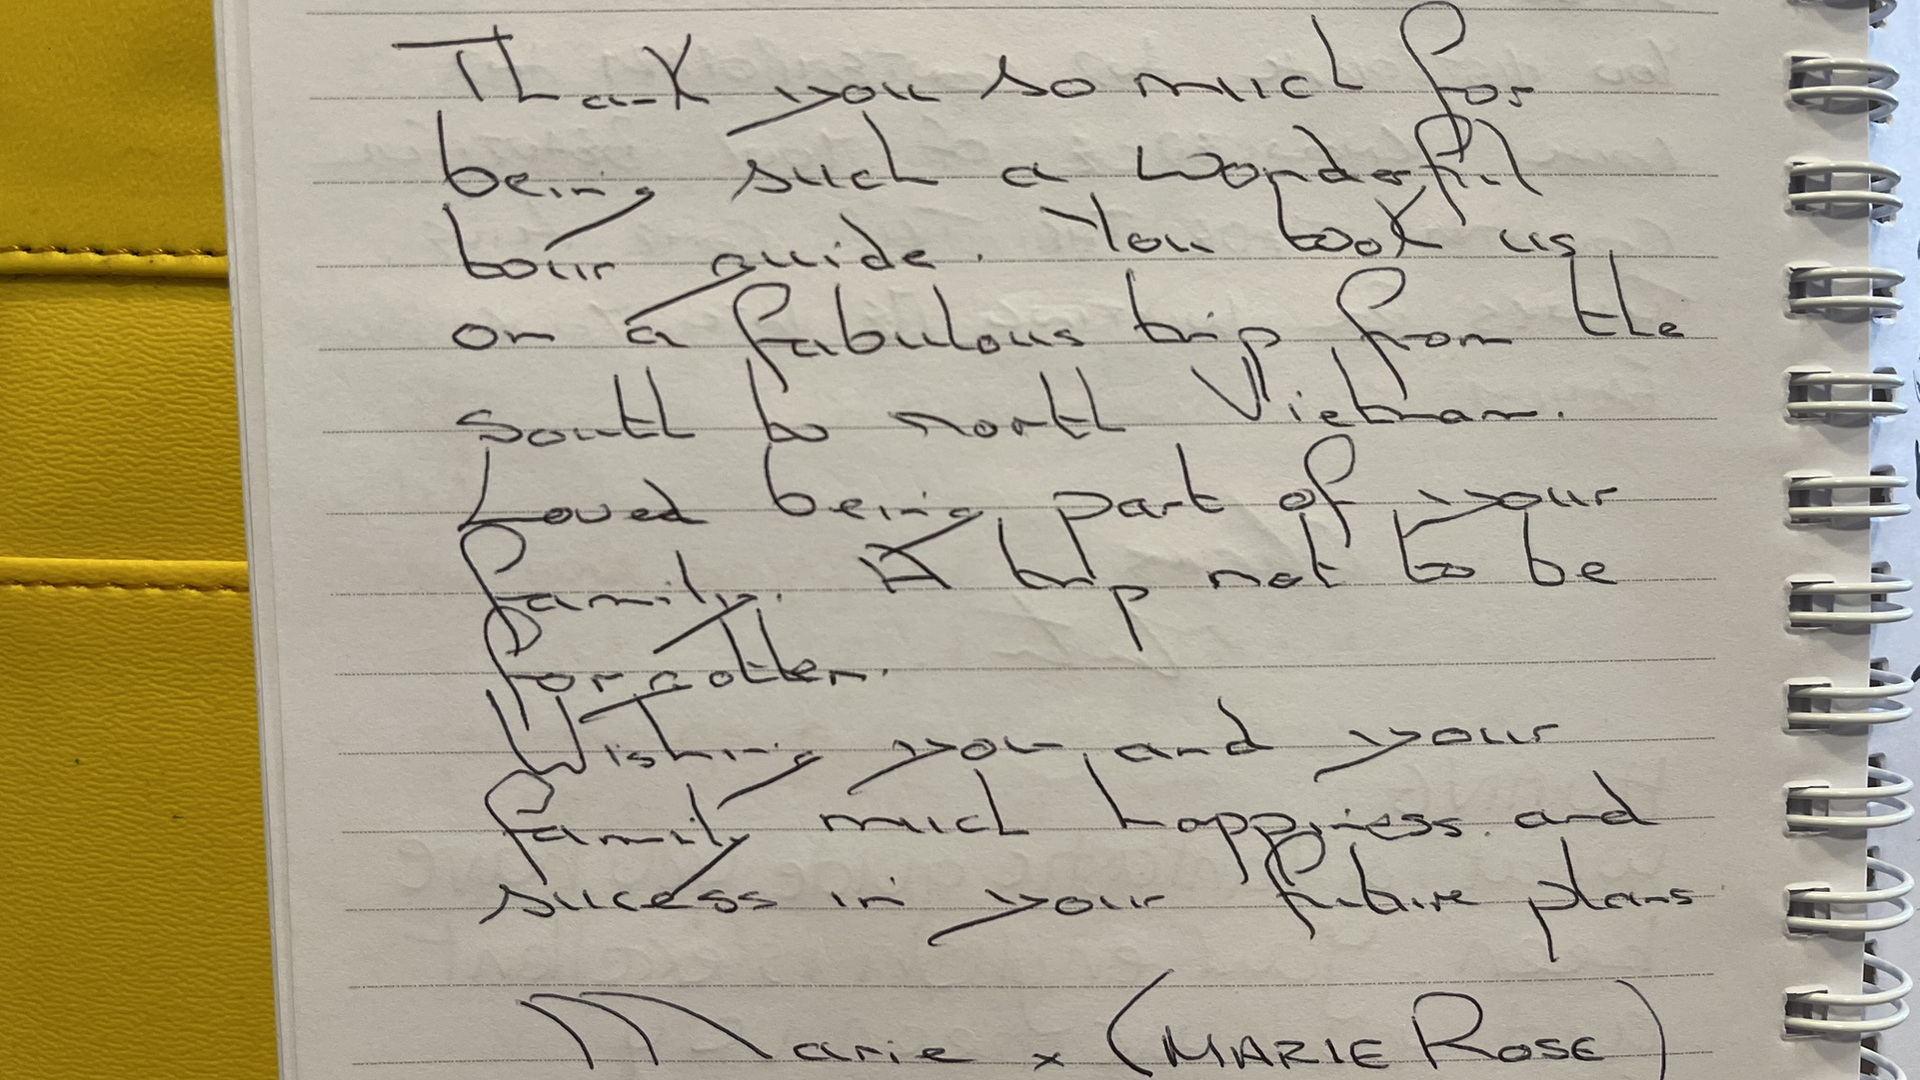 Thank you so much for
being such a wonderful
tour guide. You took us
on a fabulous trip from the
south to north Vietnam.
Loved being part of your
family. A trip not to be
forgotten.
Wishing you and your
family much happiness and
sucess in your future plans
Marie x (MARIE ROSE)